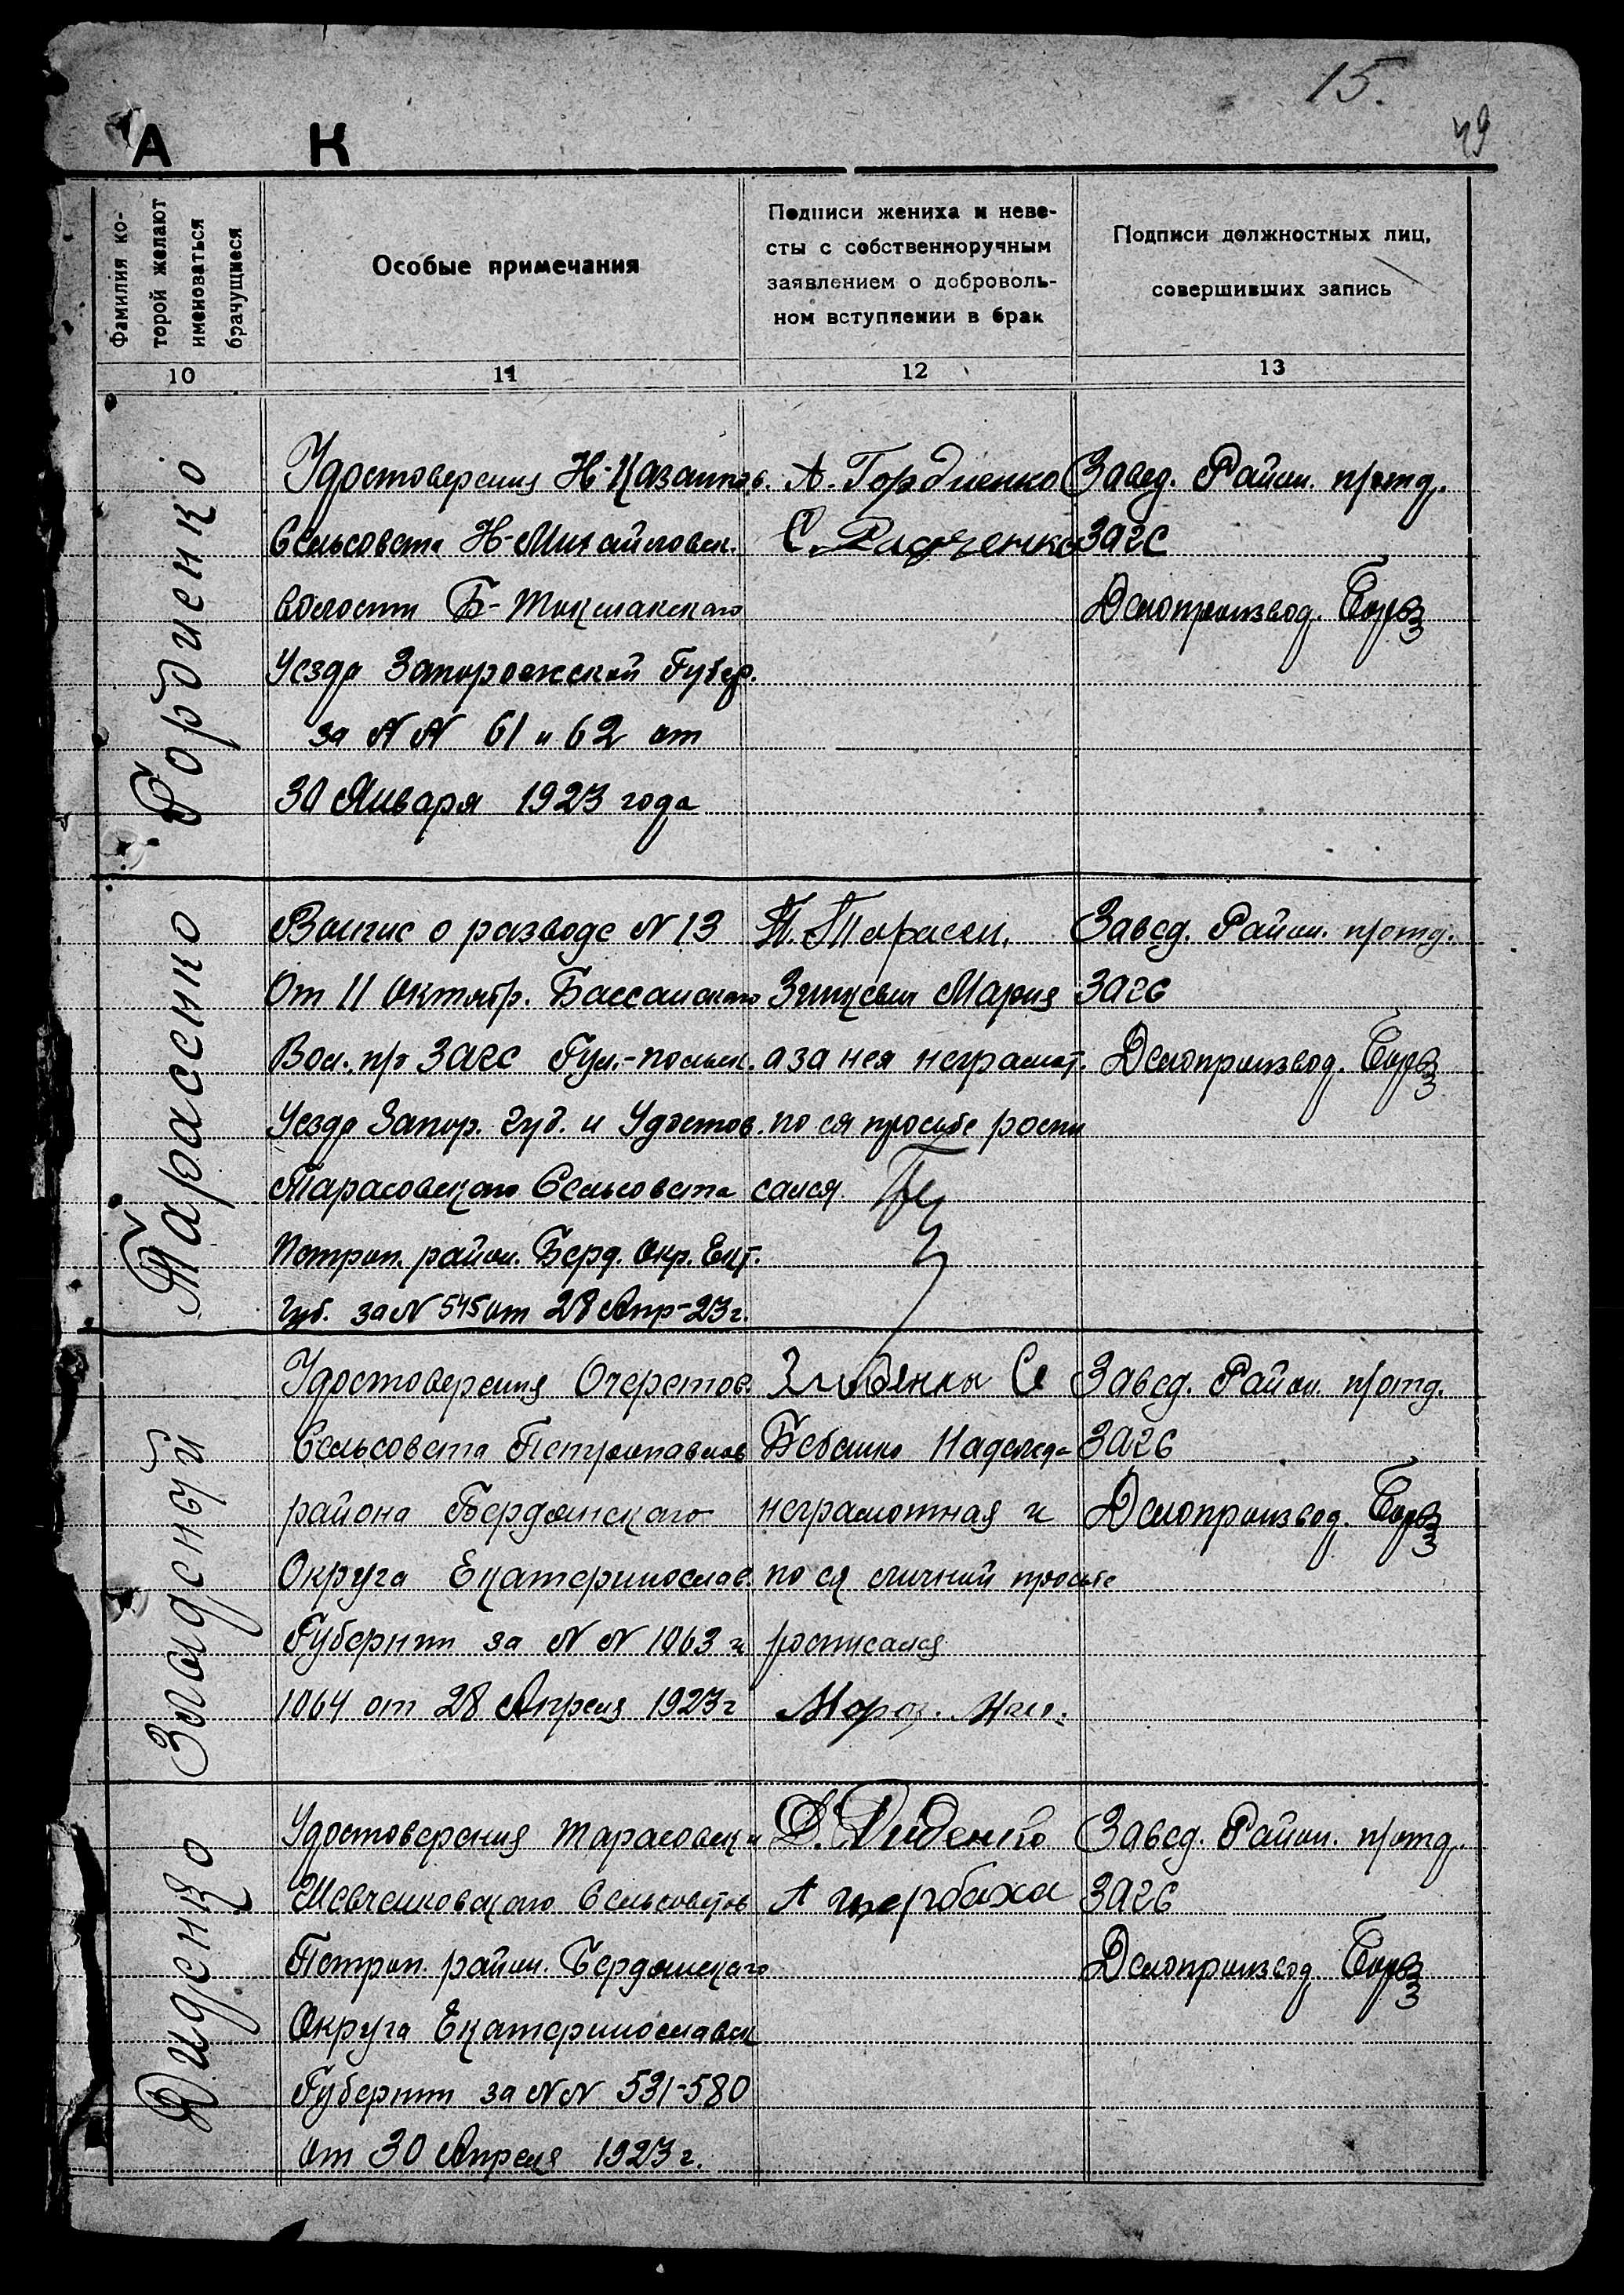 15.
49
А К
Фамилия ко-
торой желают
именоваться
брачущиеся
Особые примечания
Подписи жениха и неве-
сты с собственноручным
заявлением о доброволь-
ном вступлении в брак
Подписи должностных лиц,
совершивших запись
10
11
12
13
Гордиенко
Удостоверения
Сельсовета Н-Михайловск.
волости Б-Токмакского
Уезда Запорожской Губер.
за NN 61 и 62 от
30 Января 1923 года
А. Гордиенко
С.
Завед. Район. п/отд.
ЗАГС
Делопроизвод.
Тарасенко
Выпис о разводе N 13
От 11 Октябр. Бассанского
Вол. п/о ЗАГС Гул.-польск.
Уезда Запор. губ. и Удостов.
Тарасовского Сельсовета
Петроп. район. Берд. Окр. Ект.
Губ. за N 545 от 28 Апр-23г.
Т. Тарасен.
Зинкевич Мария
а за нея неграмот.
по ея просьбе роспи
сался
Завед. Район. п/отд.
ЗАГС
Делопроизвод.
Золидены
Удостоверения Очеретов.
Сельсовета Петропавлов
района Бердянского
Округа Екатеринослав.
Губернии за N N 1063 и
1064 от 28 Апреля 1923 г
Надежда
неграмотная и
по ея личной просьбе
росписался
Завед. Район. п/отд.
ЗАГС
Делопроизвод.
Диденко
Удостоверения Тарасовск и
Шевченковского Сельсоветов
Петроп. район. Бердянского
Округа Екатеринославск
Губернии за NN 531-580
от 30 Апреля 1923 г.
Д. Диденко
А щербаха
Завед. Район. п/отд.
ЗАГС
Делопроизвод.